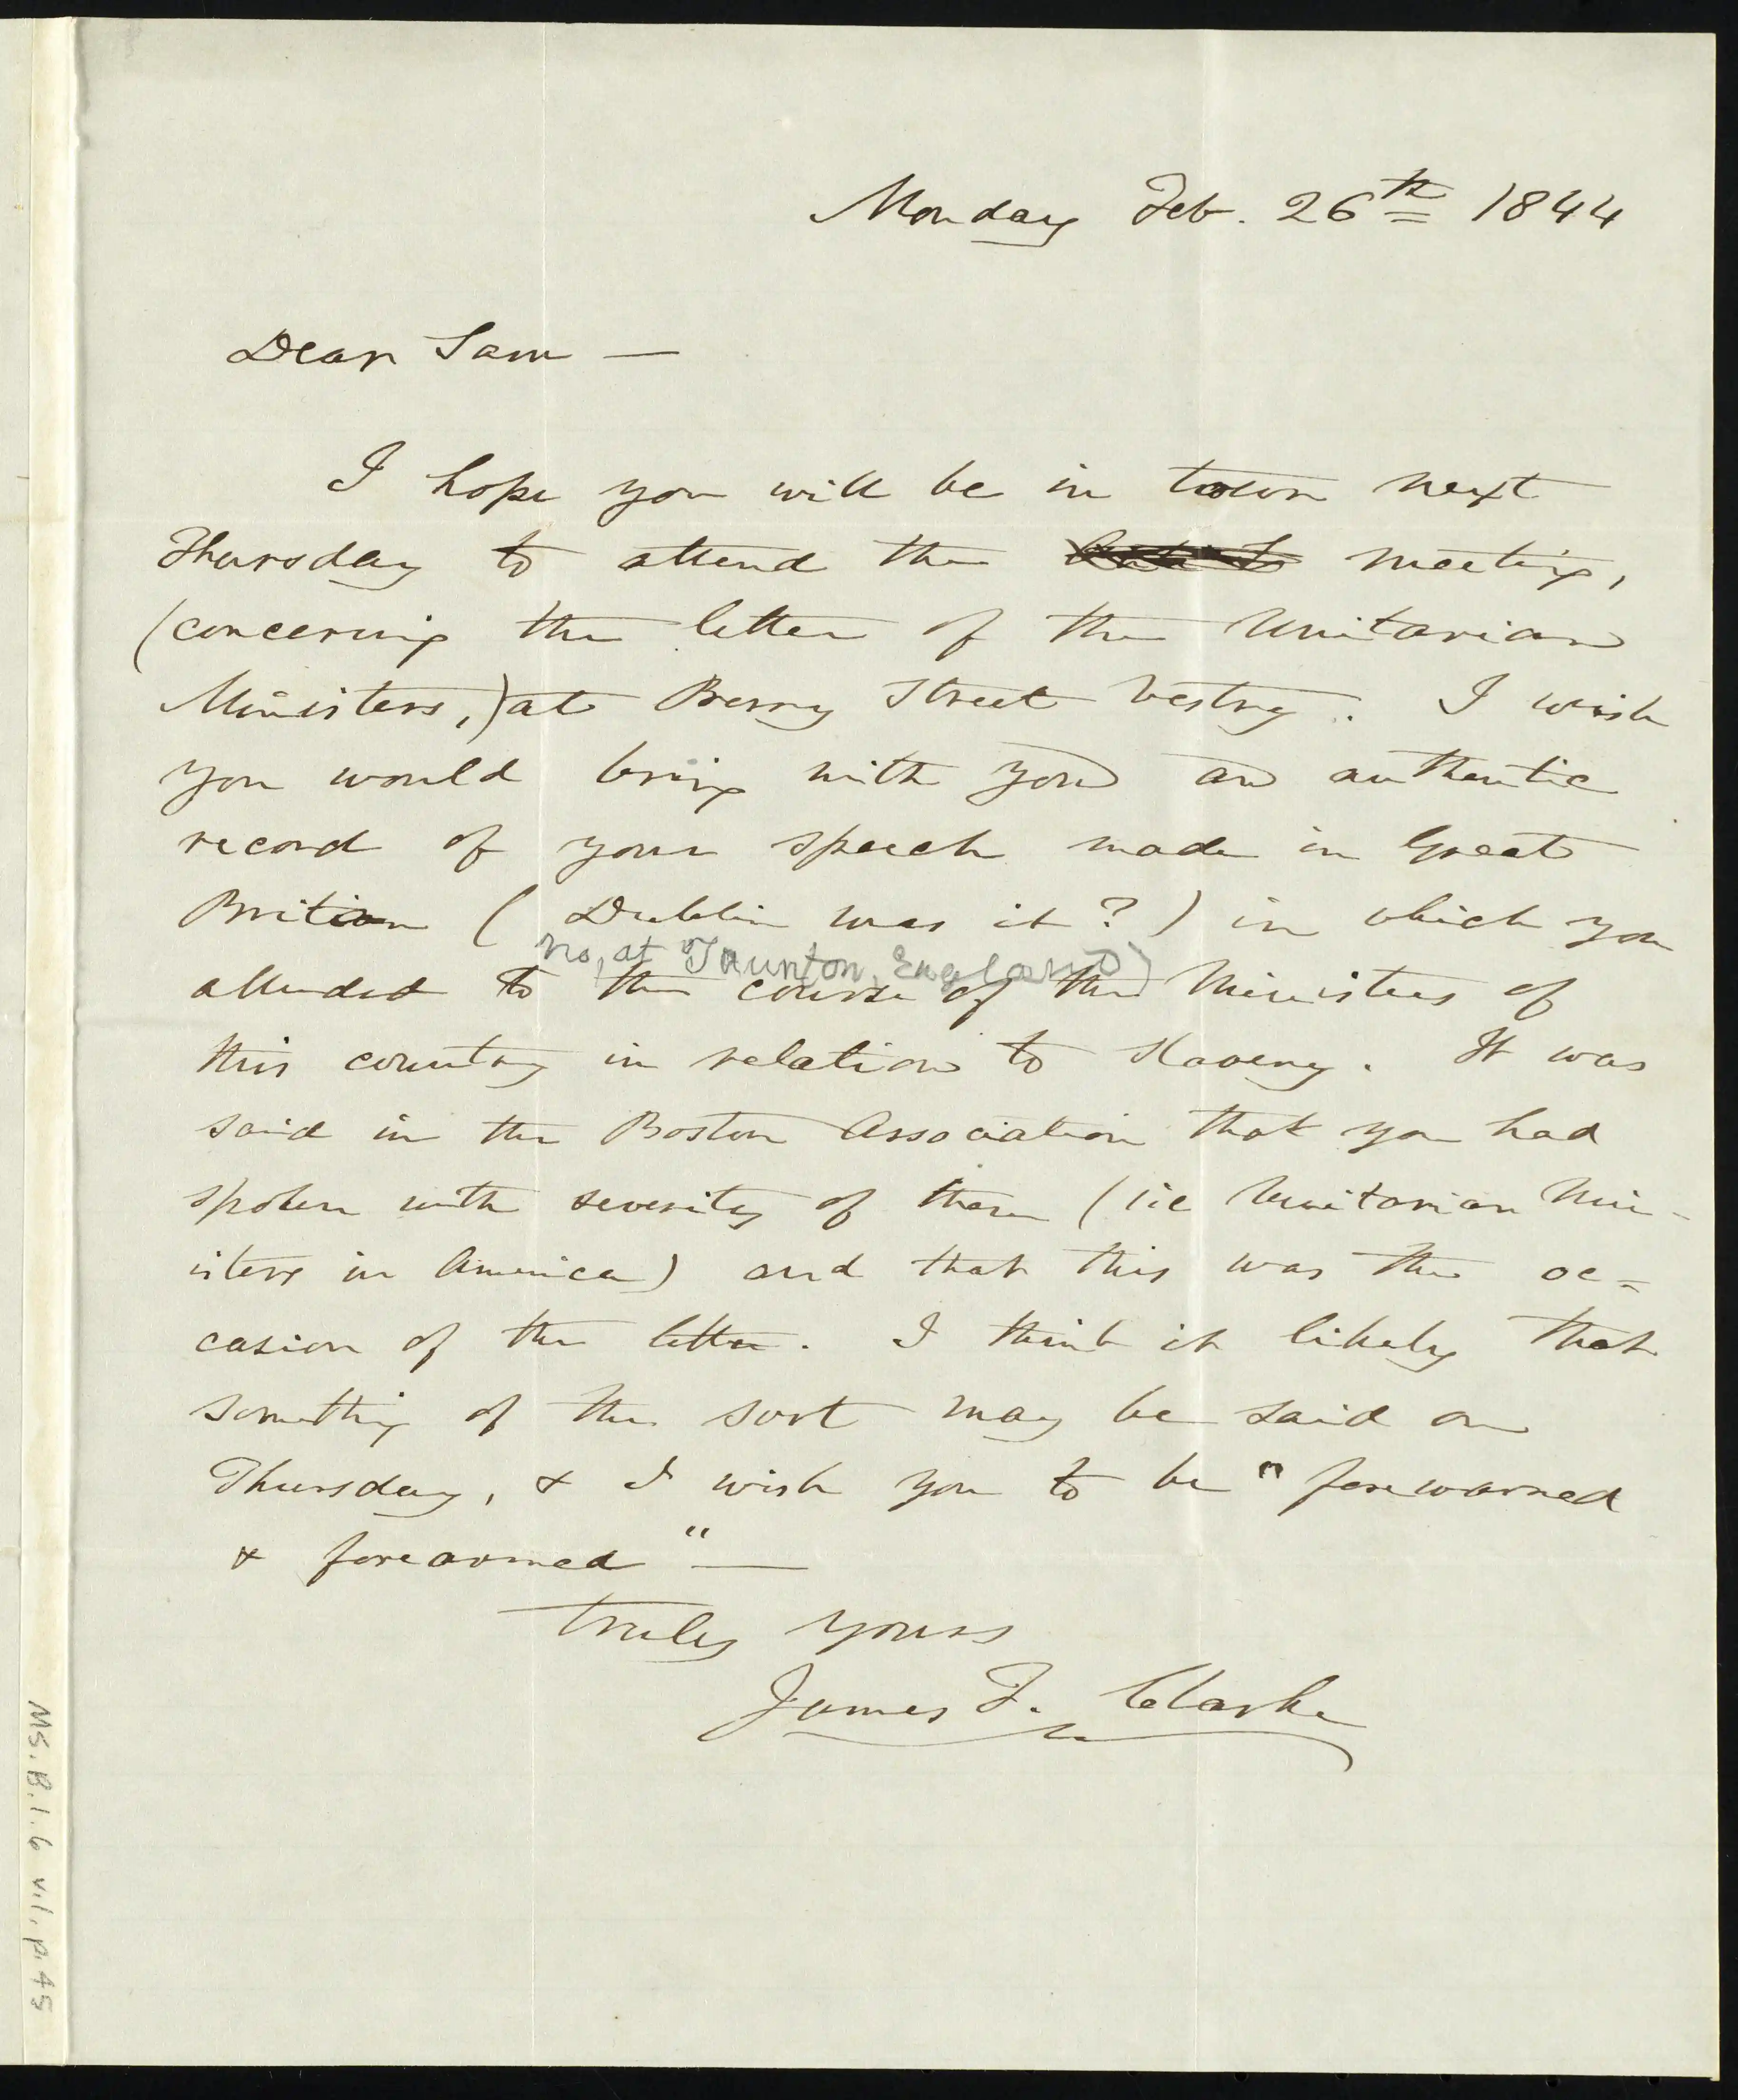 Monday Feb. 26th 1844
Dear Sam —
I hope you will be in town next
Thursday to attend the meeting,
(concerning the letter of the Unitarian
Ministers,) at Berry Street Vestry. I wish
you would bring with you an authentic
record of your speech made in Great
Britian ( Dublin was it ? ) in which you
no, at Taunton, England)
alluded to the course of the Ministers of
this country in relation to Slavery. It was
said in the Boston Association that you had
spoken with severity of them (i.e Unitarian Min-
isters in America) and that this was the oc=
casion of the letter. I think it likely that
something of the sort may be said on
Thursday, & I wish you to be "forewarned
& forearmed" —
truly yours
James F. Clarke
Ms. B. 1. 6 v.1, p. 45